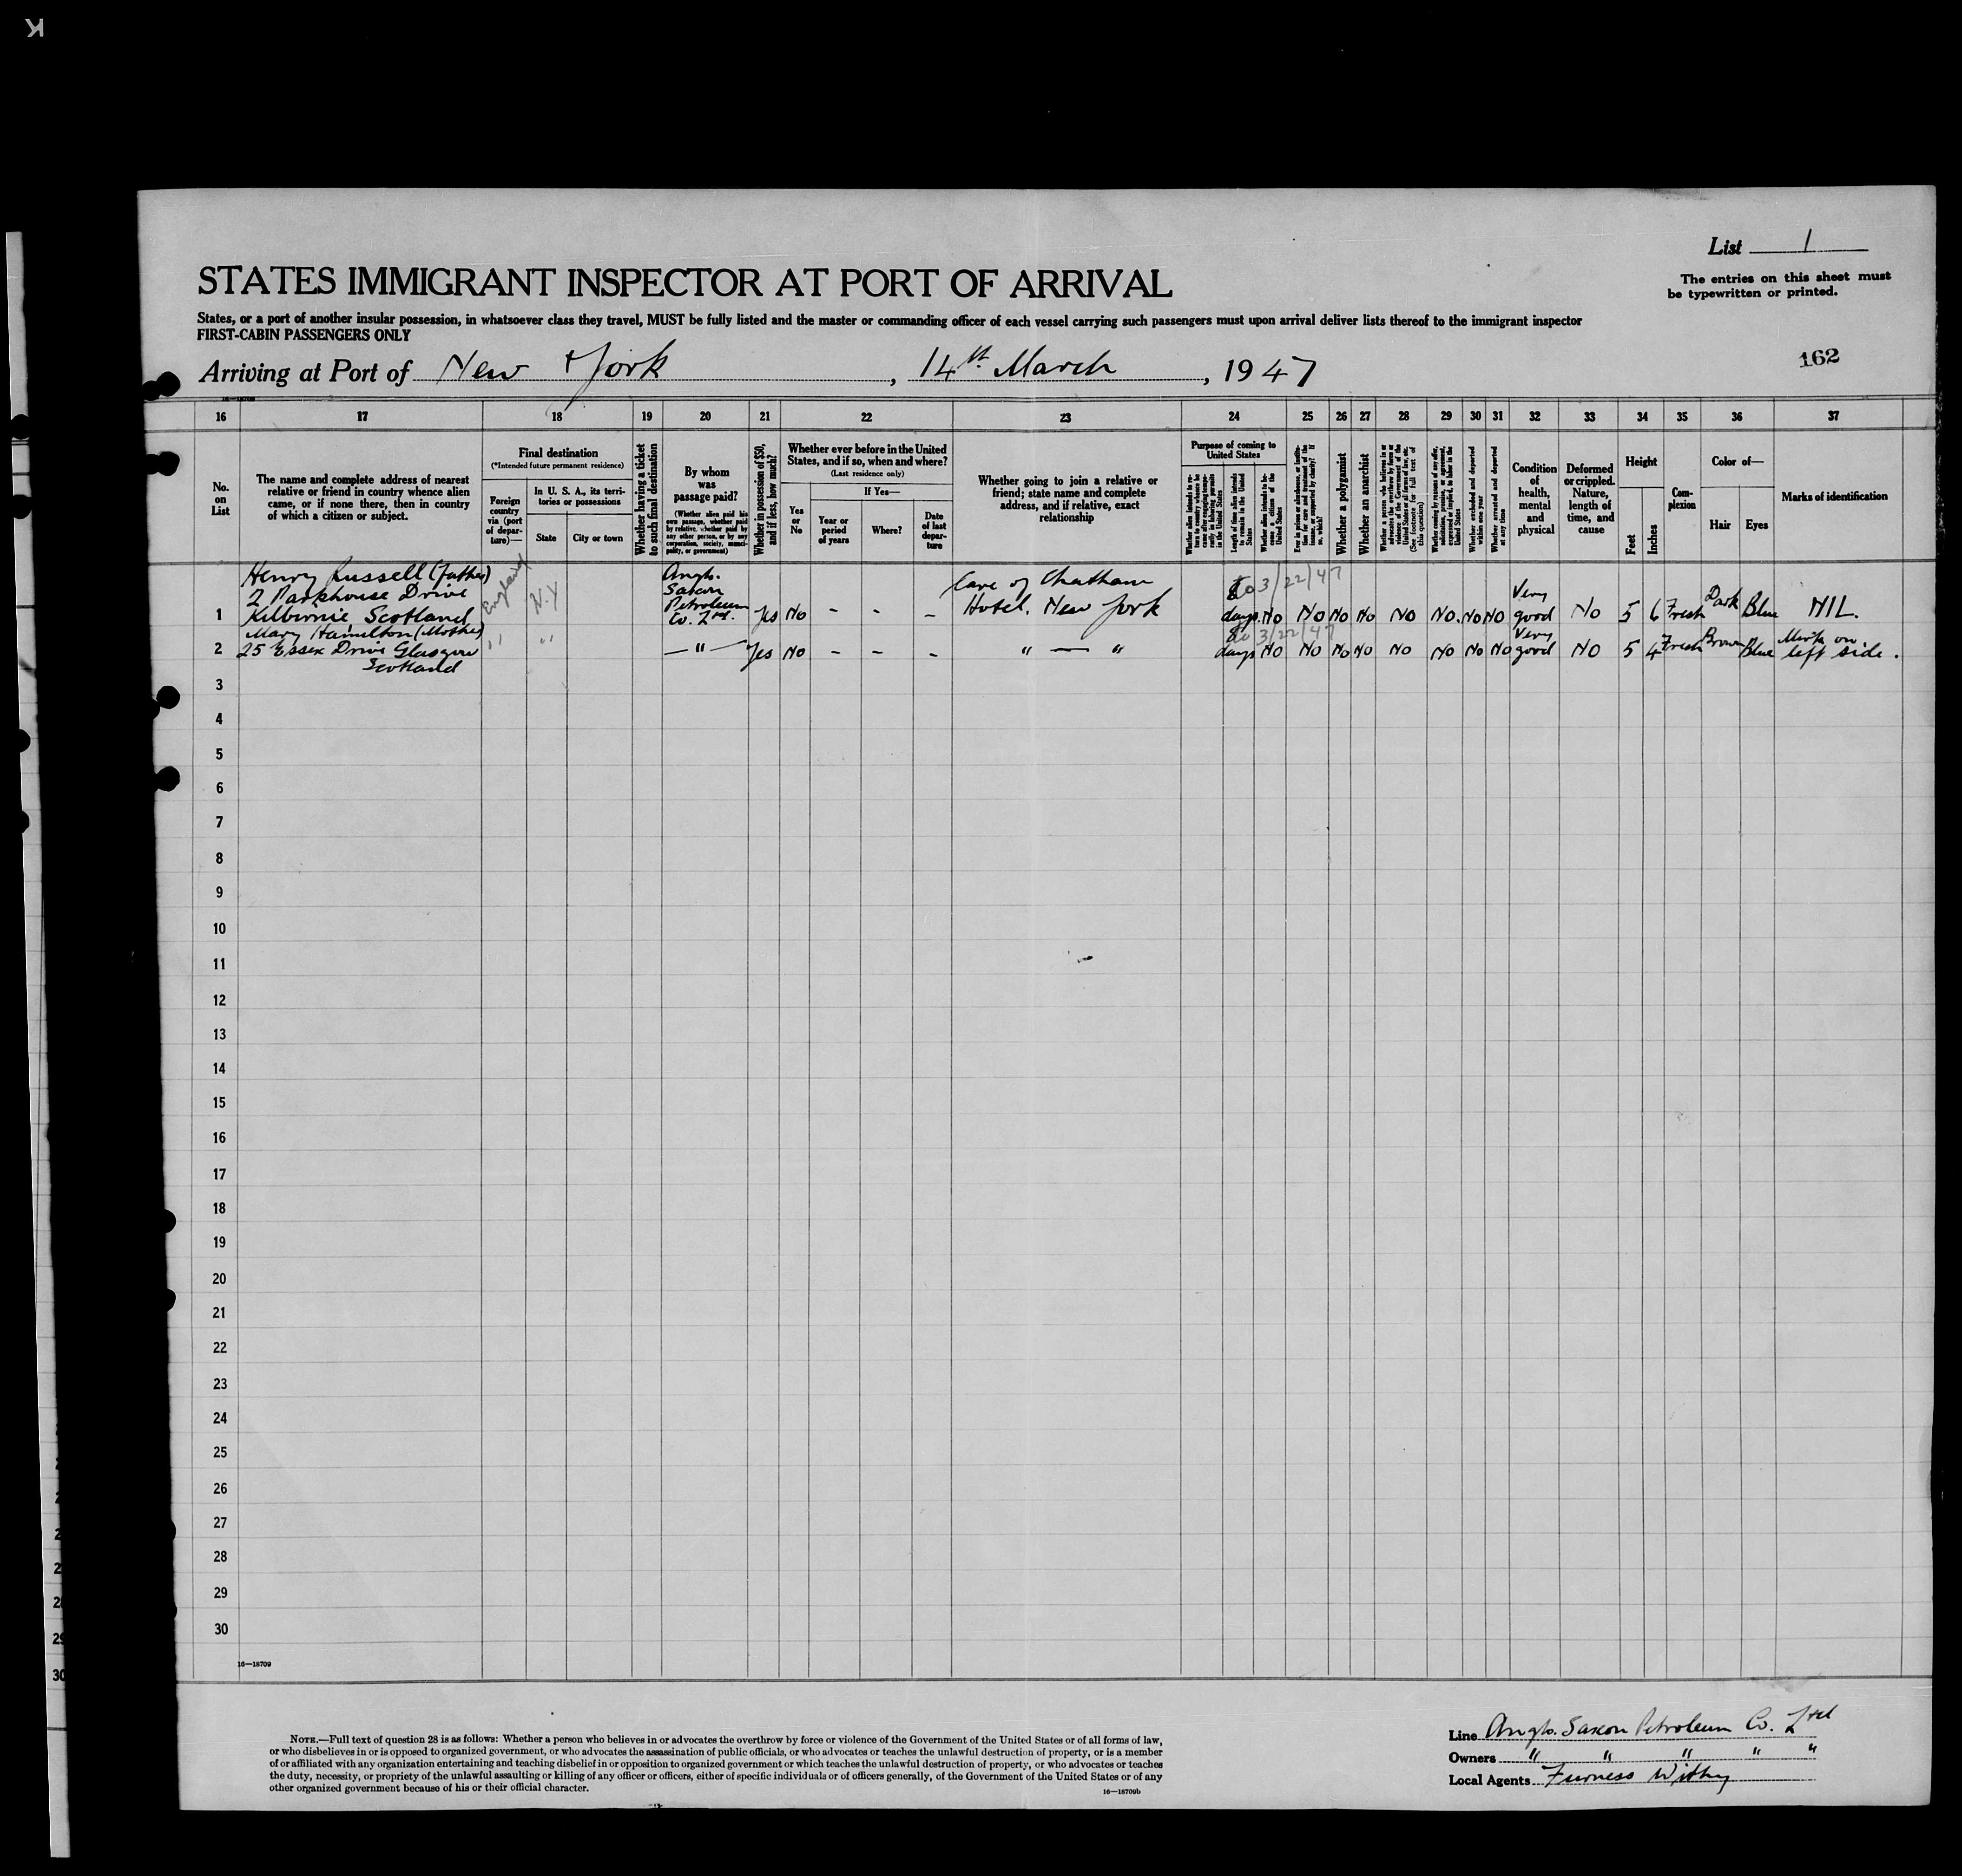 K
List 1
STATES IMMIGRANT INSPECTOR AT PORT OF ARRIVAL
The entries on this sheet must
be typewritten or printed.
States, or a port of another insular possession, in whatsoever class they travel, MUST be fully listed and the master or commanding officer of each vessel carrying such passengers must upon arrival deliver lists thereof to the immigrant inspector
FIRST-CABIN PASSENGERS ONLY
Arriving at Port of New York, 14th March, 1947
162
16 17 18 19 20 21 22 23 24 25 26 27 28 29 30 31 32 33 34 35 36 37
No. on List
The name and complete address of nearest
relative or friend in country whence alien
came, or if none there, then in country
of which a citizen or subject.
Final destination
(*Intended future permanent residence)
Foreign country via (port of departure)—
In U. S. A., its territories or possessions
State
City or town
Whether having a ticket to such final destination
By whom was passage paid?
(Whether alien paid his own passage, whether paid by relative, whether paid by any other person, or by any corporation, society, municipality, or government)
Whether in possession of $50, and if less, how much?
Whether ever before in the United
States, and if so, when and where?
(Last residence only)
Yes or No
If Yes—
Year or period of years
Where?
Date of last departure
Whether going to join a relative or
friend; state name and complete
address, and if relative, exact
relationship
Purpose of coming to United States
Length of time alien intends to remain in the United States
Whether alien intends to become a citizen of the United States
Whether a polygamist
Whether an anarchist
Whether arrested and deported within one year
Whether arrested and deported at any time
Condition of health, mental and physical
Deformed or crippled. Nature, length of time, and cause
Height
Feet
Inches
Complexion
Color of—
Hair
Eyes
Marks of identification
Henry Russell (father)
2 Parkhouse Drive
1 Kilbirnie Scotland England N.Y Anglo. Saxon Petroleum Co. Ltd. Yes No - - - Care of Chatham Hotel. New York to 3/22/47 days. No No No No No No. No No Very good No 5 6 Fresh Dark Blue NIL.
Mary Hamilton (Mother)
2 25 Essex Drive Glasgow " " — " — Yes No - - - " — " to 3/22/47 days No No No No No No No No Very good No 5 4 Fresh Brown Blue Mark on left side.
Scotland
3
4
5
6
7
8
9
10
11
12
13
14
15
16
17
18
19
20
21
22
23
24
25
26
27
28
29
30
16—18709
NOTE.—Full text of question 28 is as follows: Whether a person who believes in or advocates the overthrow by force or violence of the Government of the United States or of all forms of law,
or who disbelieves in or is opposed to organized government, or who advocates the assassination of public officials, or who advocates or teaches the unlawful destruction of property, or is a member
of or affiliated with any organization entertaining and teaching disbelief in or opposition to organized government or which teaches the unlawful destruction of property, or who advocates or teaches
the duty, necessity, or propriety of the unlawful assaulting or killing of any officer or officers, either of specific individuals or of officers generally, of the Government of the United States or of any
other organized government because of his or their official character.
16—18709b
Line Anglo. Saxon Petroleum Co. Ltd
Owners " " " " "
Local Agents Furness Withy